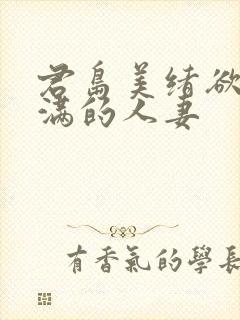 君島美緒欲
满的人妻
有香氣的學長